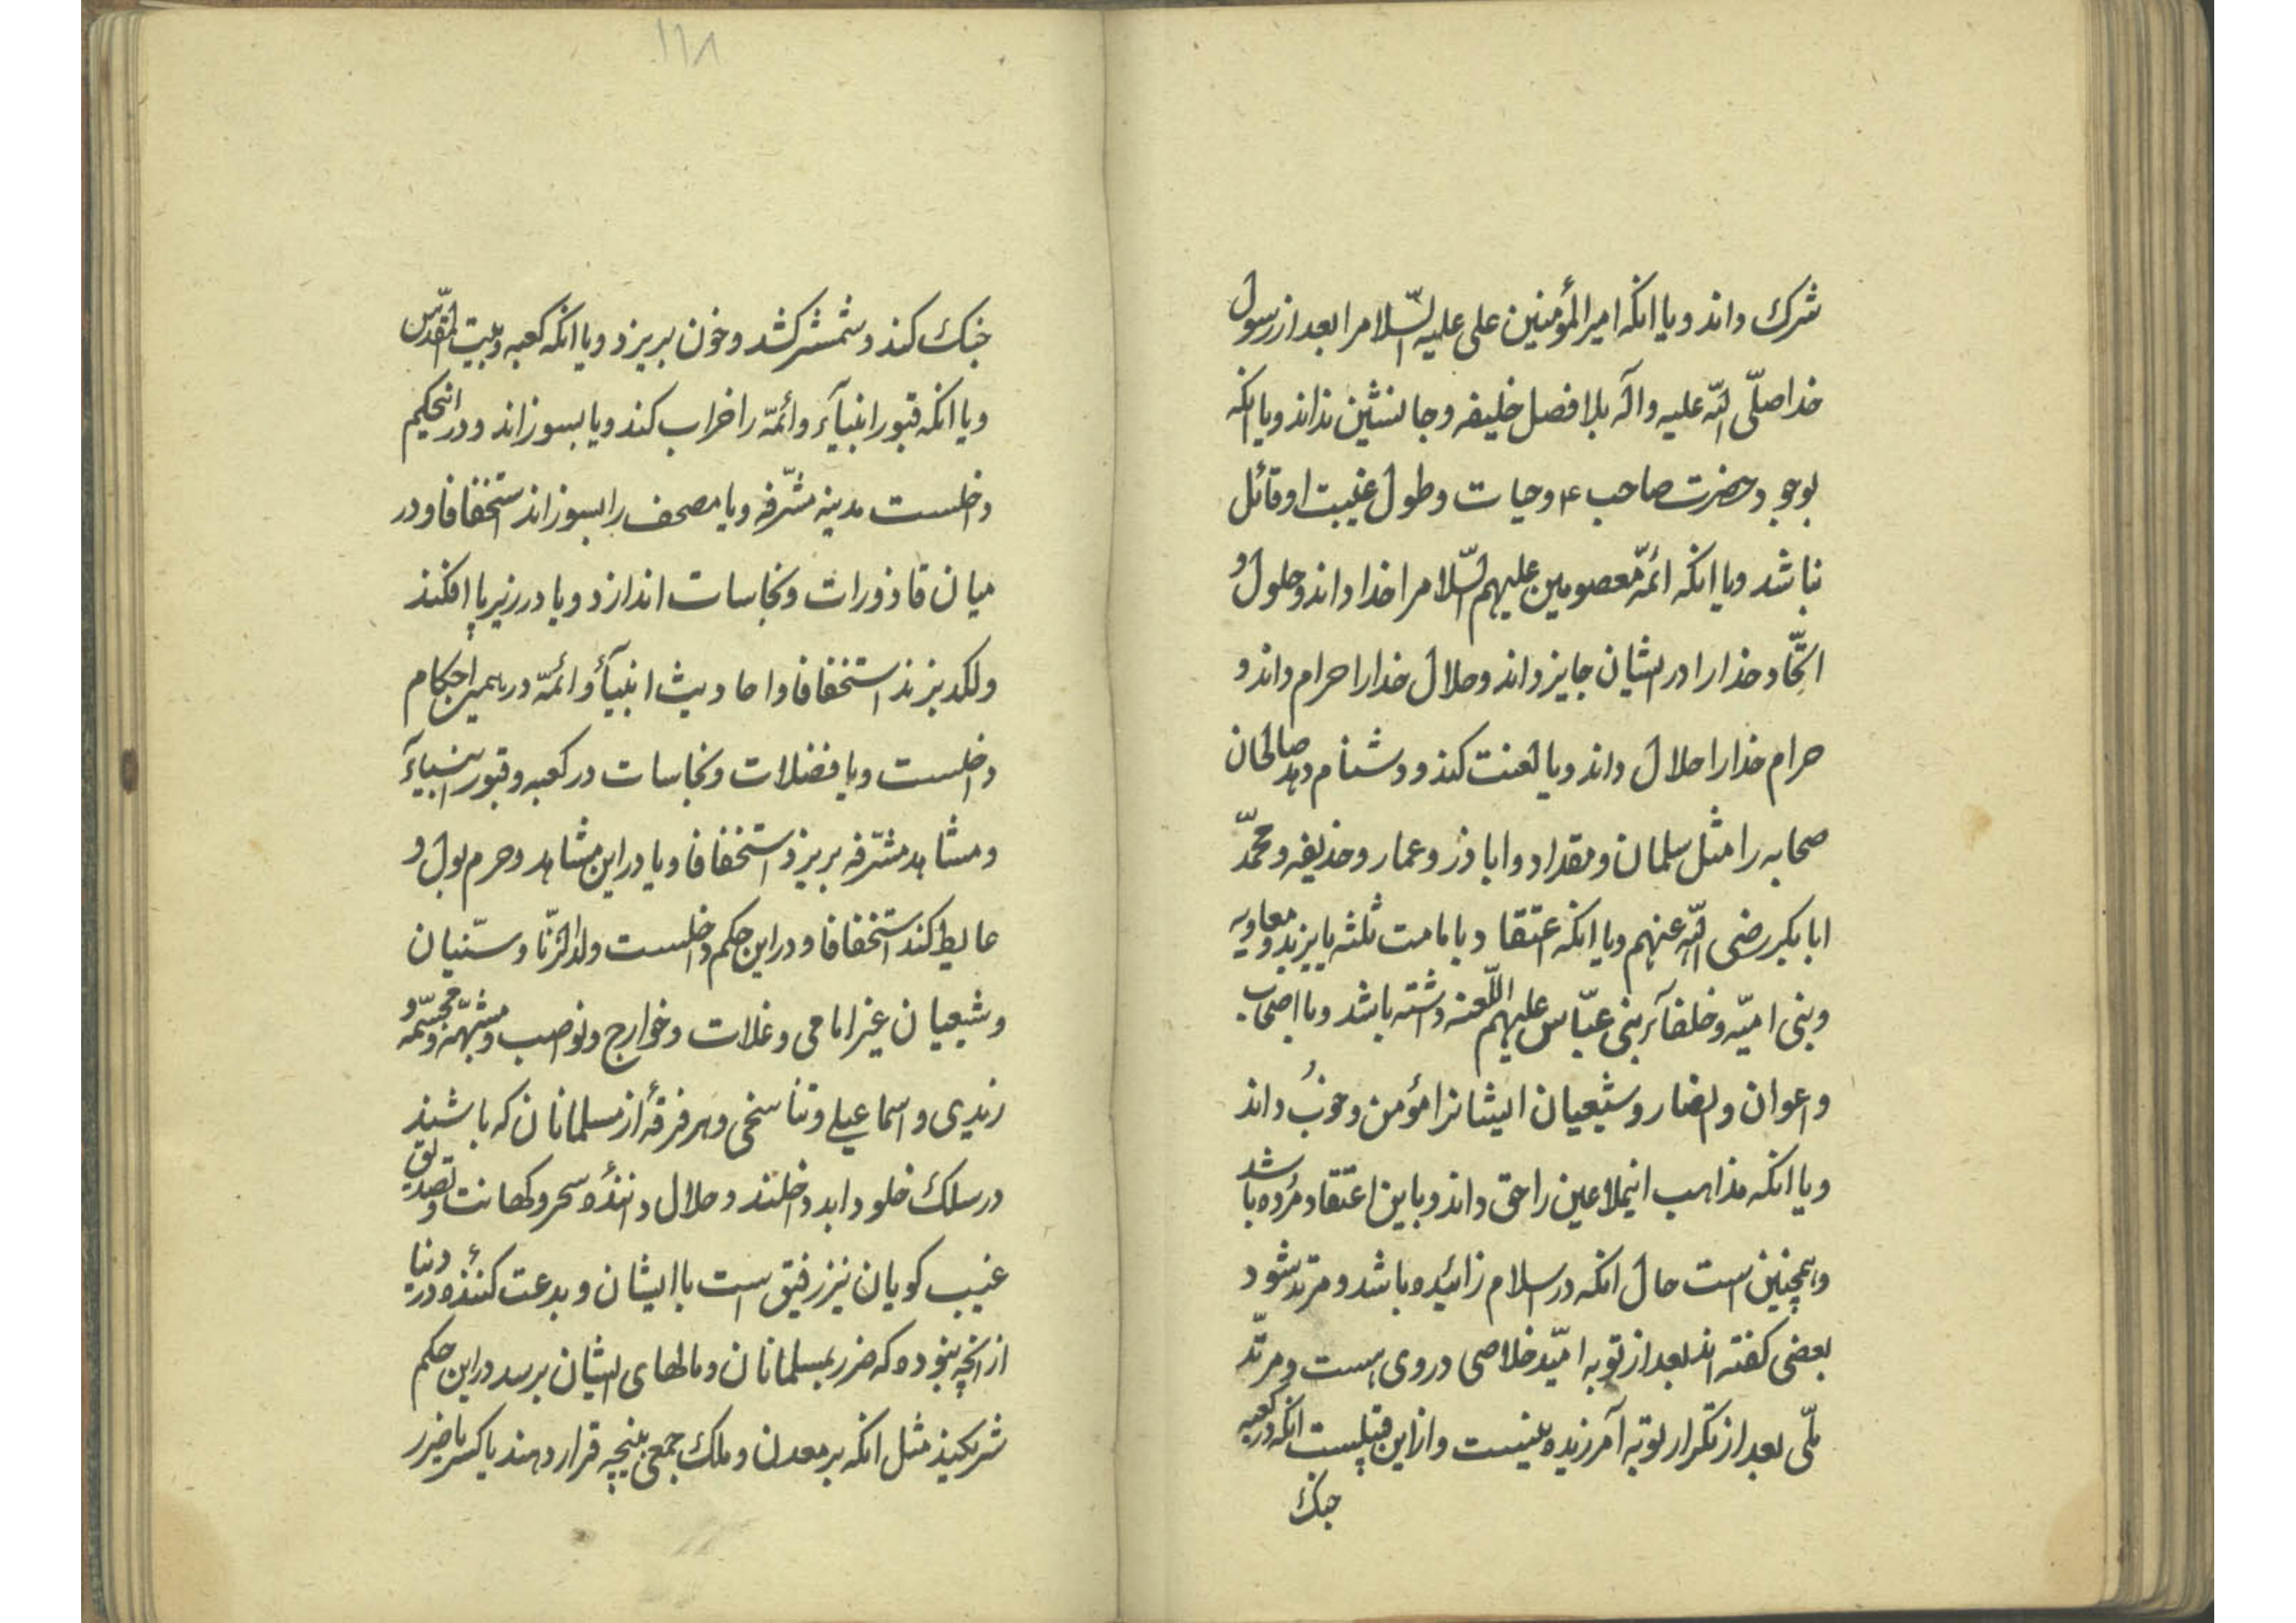 شرک داند و یا انکه امیر المؤمنین علی علیه السّلام را بعد از رسول
خدا صلّی اللّه علیه و آله بلا فصل خلیفه و جانشین نداند و یا انکه
بوجود حضرت صاحب ع و حیات و طول غیبت او قائل
نباشد و یا انکه ائمّه معصومین علیهم السّلام را خدا داند و حلول و
اتّحاد خدا را در ایشان جایز داند و حلال خدا را حرام داند و
حرام خدا را حلال داند و یا لعنت کند و دشنام دهد صالحان
صحابه را مثل سلمان و مقداد و اباذر و عمار و حذیفه و محمّد
ابابکر رضی اللّه عنهم و یا انکه اعتقاد با مامت ثلثه یا یزید و معاویه
و بنی امیّه و خلفآء بنی عبّاس علیهم اللّعنه داشته باشد و یا اصحاب
و اعوان و انصار و شیعیان ایشانرا مؤمن و خوب داند
و یا انکه مذاهب اینملاعین را حق داند و باین اعتقاد مرده باشد
و همچنین است حال انکه در اسلام زائیده باشد و مرتد شود
بعضی کفته اند بعد از توبه امّید خلاصی در وی هست و مرتدّ
ملّی بعد از تکرار توبه آمرزیده نیست و از این قبیلست انکه در کعبه
جنک
۱۱۸
جنک کند و شمشیر کشد و خون بریزد و یا انکه کعبه و بیت المقدّس
و یا انکه قبور انبیآء و ائمّه را خراب کند و یا بسوزاند و در اینحکم
داخلست مدینه مشرّفه و یا مصحف را بسوزاند استخفافا و در
میان قاذورات و نجاسات اندازد و یا در زیر پا افکند
و لکد بزند استخفافا و احادیث انبیآء و ائمّه در همین احکام
داخلست و یا فضلات و نجاسات در کعبه و قبور انبیآء
و مشاهد مشرّفه بریزد استخفافا و یا در این مشاهد و حرم بول و
غایط کند استخفافا و در این حکم داخلست ولد الزّنا و سنّیان
و شیعیان غیر امامی و غلات و خوارج و نواصب و مشبّهه و مجسّمه و
زیدی و اسماعیلی و تناسخی و هر فرقهٔ از مسلمانان که باشند
در سلک خلود ابد داخلند و حلال دانندهٔ سحر و کهانت و تصدیق
غیب کویان نیز رفیق است با ایشان و بدعت کنندهٔ در دنیا
از انچه نبوده که ضرر بمسلمانان و مالهای ایشان برسد در این حکم
شریکند مثل انکه بر معدن و ملک جمعی بنیچه قرار دهند یا کسر یا ضرر